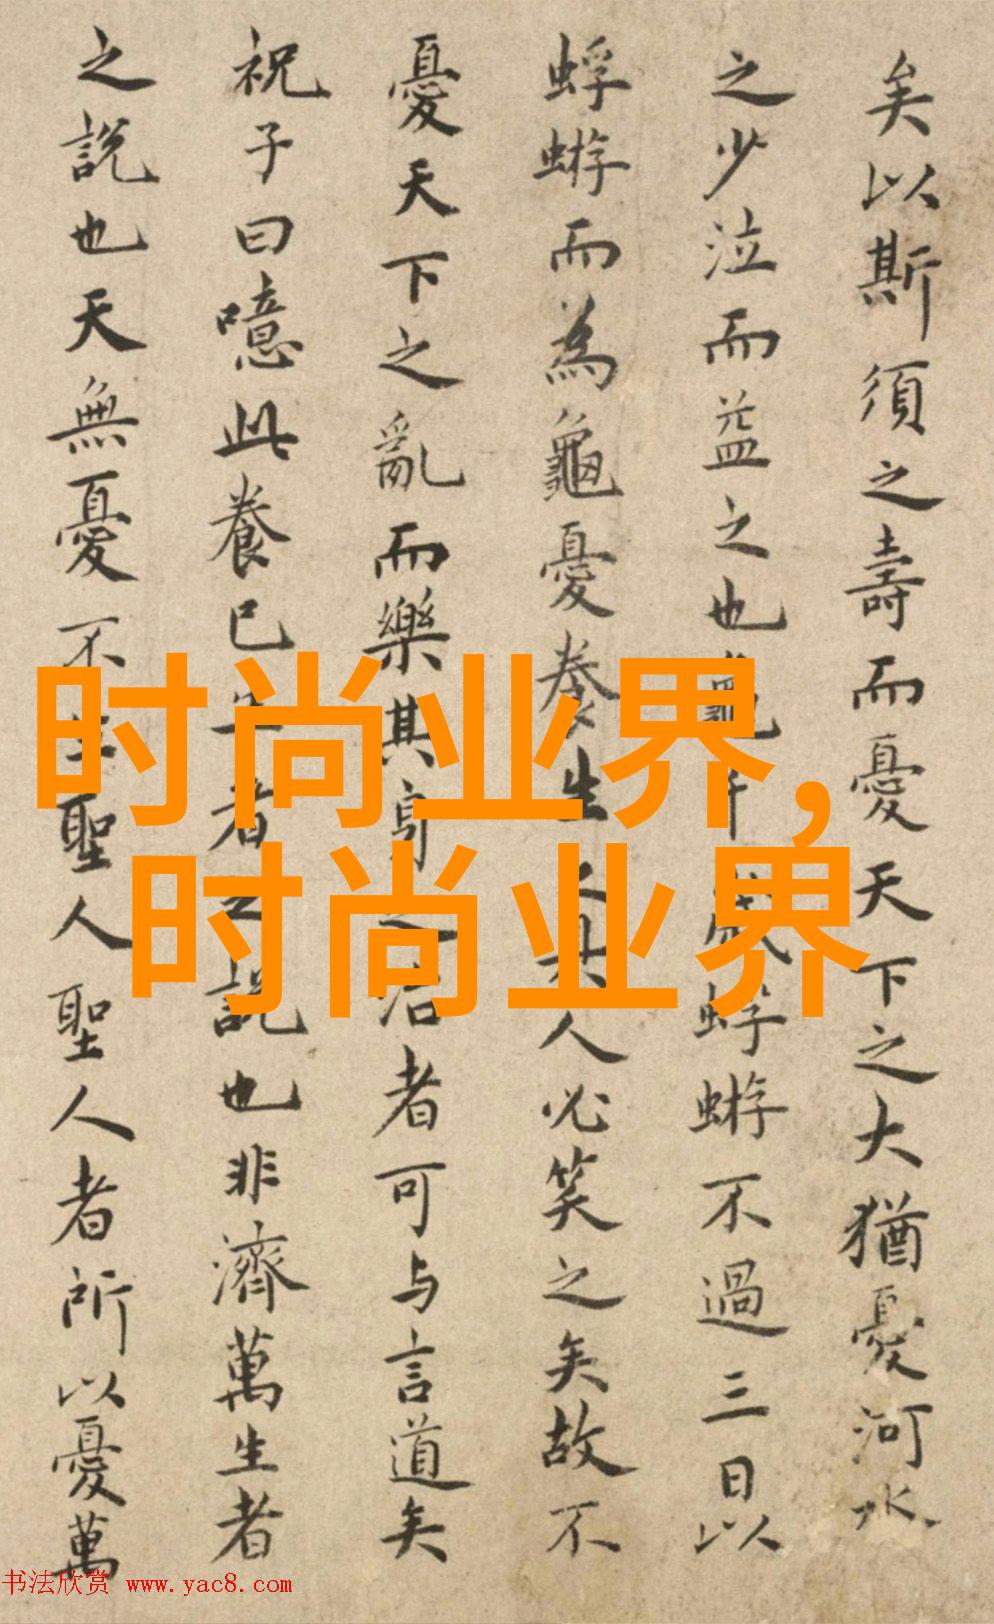 矣以斯須之壽而憂天下之大猶憂河水
之少泣而益之也龜千歲蜉蝣不過三日以
蜉蝣而為龜憂養生之具人必笑之矣故不
憂天下之亂而樂其身之治者可与言道矣
祝子曰噫此養己生者之說也非濟萬生者
之說也天無憂不生聖人聖人者所以憂萬
时尚业界,
时尚业界
书法欣赏 www.yac8.com